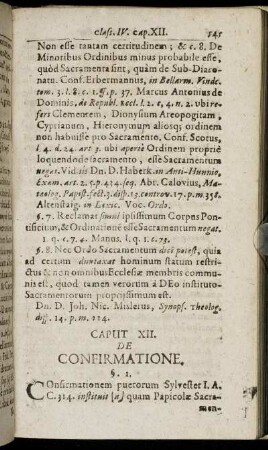 claſſ. IV. cap. XII. 141
Non eſſe tantam certitudinem; & c. 8. De
Minoribus Ordinibus minus probabile eſſe,
quòd Sacramenta ſint, quàm de Sub-Diaco-
natu. Conf. Erbermannus, in Bellarm. Vindic.
tom. 3. l. 8. c. 1. p. 37. Marcus Antonius de
Dominis, de Republ. Eccl. l. 2. c. 4. n. 2. ubi re-
fert Clementem, Dionyſium Areopogitam,
Cyprianum, Hieronymum alioſq; ordinem
non habuiſſe pro Sacramento. Conf. Scotus,
l. 4. d. 24. art. ubi apertè Ordinem propriè
loquendo de ſacramento, eſſe Sacramentum
negat. Vid. ſis Dn. D. Haberk. in Anti-Hunnio,
Exam. art. 2. p. 414. ſeq. Abr. Calovius, Ma-
Altenſtaig. in Lexic. Voc. Ordo.
§. 7. Reclamat ſimul ipſiſſimum Corpus Pon-
tificium, & Ordinationē eſſe Sacramentum negat.
1. q. c. 74. Manus, 1. q. 1. c. 75.
§. 8. Nec Ordo Sacramentum dici poteſt, quia
ad certum duntaxat hominum ſtatum reſtri-
ctus & non omnibus Eccleſiæ membris commu-
nis eſt, quod tamen verorum à DEo inſtituto-
Sacramentorum propriſſimum eſt.
Dn. D. Joh. Nic. Miſlerus, Synopſ. Theolog.
diſp. 14. p. m. 214.
CAPUT XII.
DE
CONFIRMATIONE.
§. 1.
Confirmationem puerorum Sylveſter I. A.
C. 314. inſtituit [a] quam Papicolæ Sacra-
men-